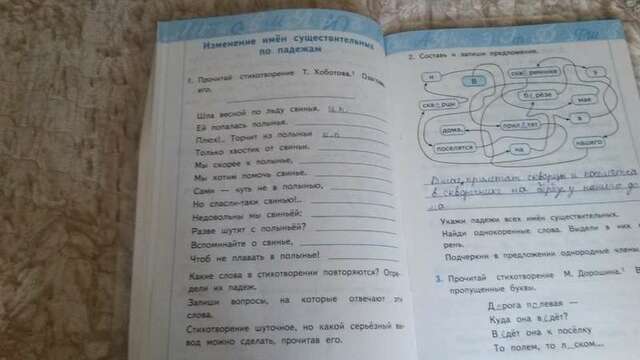 Изменение имён существительных
по падежам
1. Прочитай стихотворение Т. Хоботова.¹
его.
Шла весной по льду свинья, и.п.
Ей попалась полынья.
Плюх!.. Торчит из полыньи и.п
Только хвостик от свиньи.
Мы скорее к полынье,
Мы хотим помочь свинье.
Сами — чуть не в полынью,
Но спасли-таки свинью!..
Недовольны мы свиньёй:
Разве шутят с полыньёй?
Вспоминайте о свинье,
Чтоб не плавать в полынье!
Какие слова в стихотворении повторяются? Опре-
дели их падеж.
Запиши вопросы, на которые отвечают эти
слова.
Стихотворение шуточное, но какой серьёзный вы-
вод можно сделать, прочитав его.
2. Составь и запиши предложение.
и
В
скв_речнике
у
скв_рцы
б_рёзе
мае
дома.
прил_тят
в
поселятся
на
нашего
В мае прилетят скворцы и поселятся
в скворечнике на берёзе у нашего до
ма
Укажи падежи всех имён существительных.
Найди однокоренные слова. Выдели в них
рень.
Подчеркни в предложении однородные члены
3. Прочитай стихотворение М. Дорошина.²
пропущенные буквы.
Дорога полевая —
Куда она в_дёт?
В_дёт она к посёлку
То полем, то л_ском...